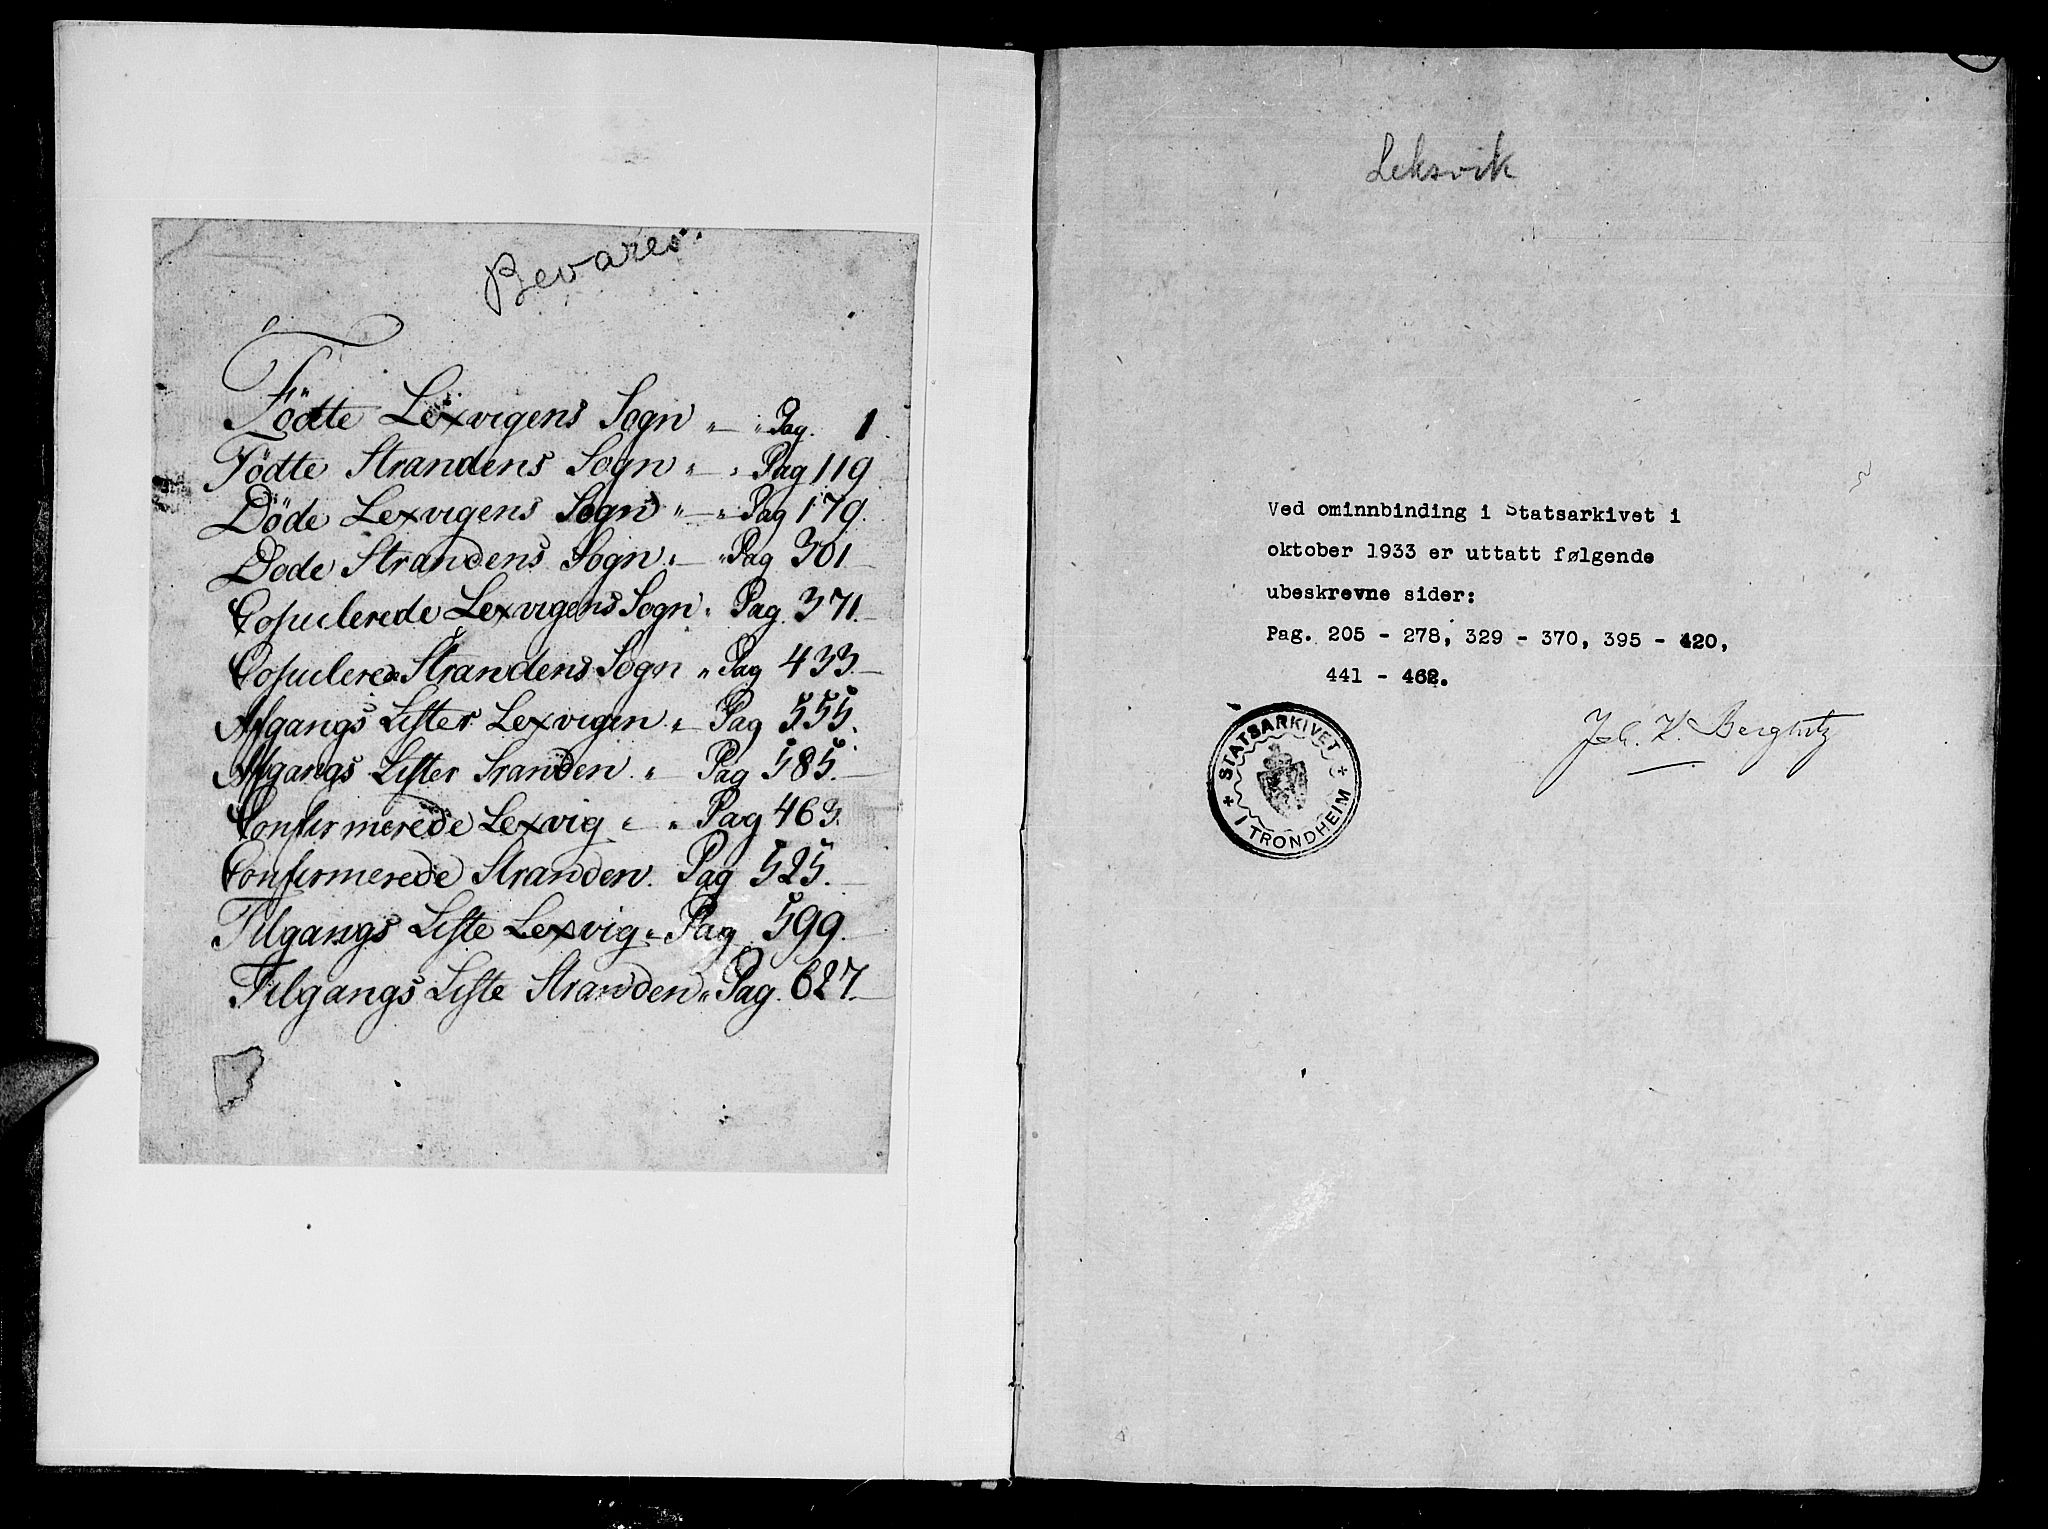 Bevares.
Födte Lexvigens Sogn „ — „ Pag. 1.
Födte Strandens Sogn „ — „ Pag 119
Döde Lexvigens Sogn „ — „ Pag 179.
Döde Strandens Sogn „ — „ Pag 301 —
Copulerede Lexvigens Sogn „ Pag. 371. —
Copulerede Strandens Sogn „ Pag 433. —
Afgangs Lister Lexvigen „ — Pag 555.
Afgangs Lister Sranden. „ — Pag 585. —
Confirmerede Lexvig „ — „ Pag 463.
Confirmerede Stranden. Pag 525. —
Tilgangs Liste Lexvig „ — Pag 599. —
Tilgangs Liste Stranden „ Pag. 627. —
Leksvik
Ved ominnbinding i Statsarkivet i
oktober 1933 er uttatt følgende
ubeskrevne sider:
Pag. 205 - 278, 329 - 370, 395 - 420,
441 - 462.
Joh. K. Berghutz
STATSARKIVET
I TRONDHEIM